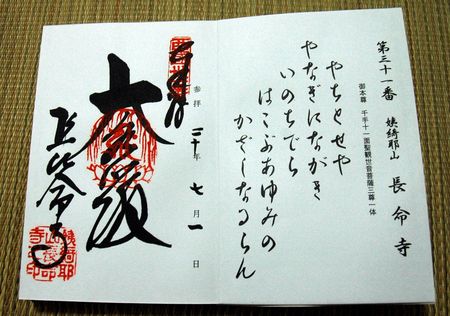 第三十一番 姨綺耶山 長命寺
御本尊 千手十一面聖観世音菩薩三尊一体
やちとせや
やなぎにながき
いのちでら
はこぶあゆみの
かざしなるらん
参拝 二十年 七月 一日
長命寺